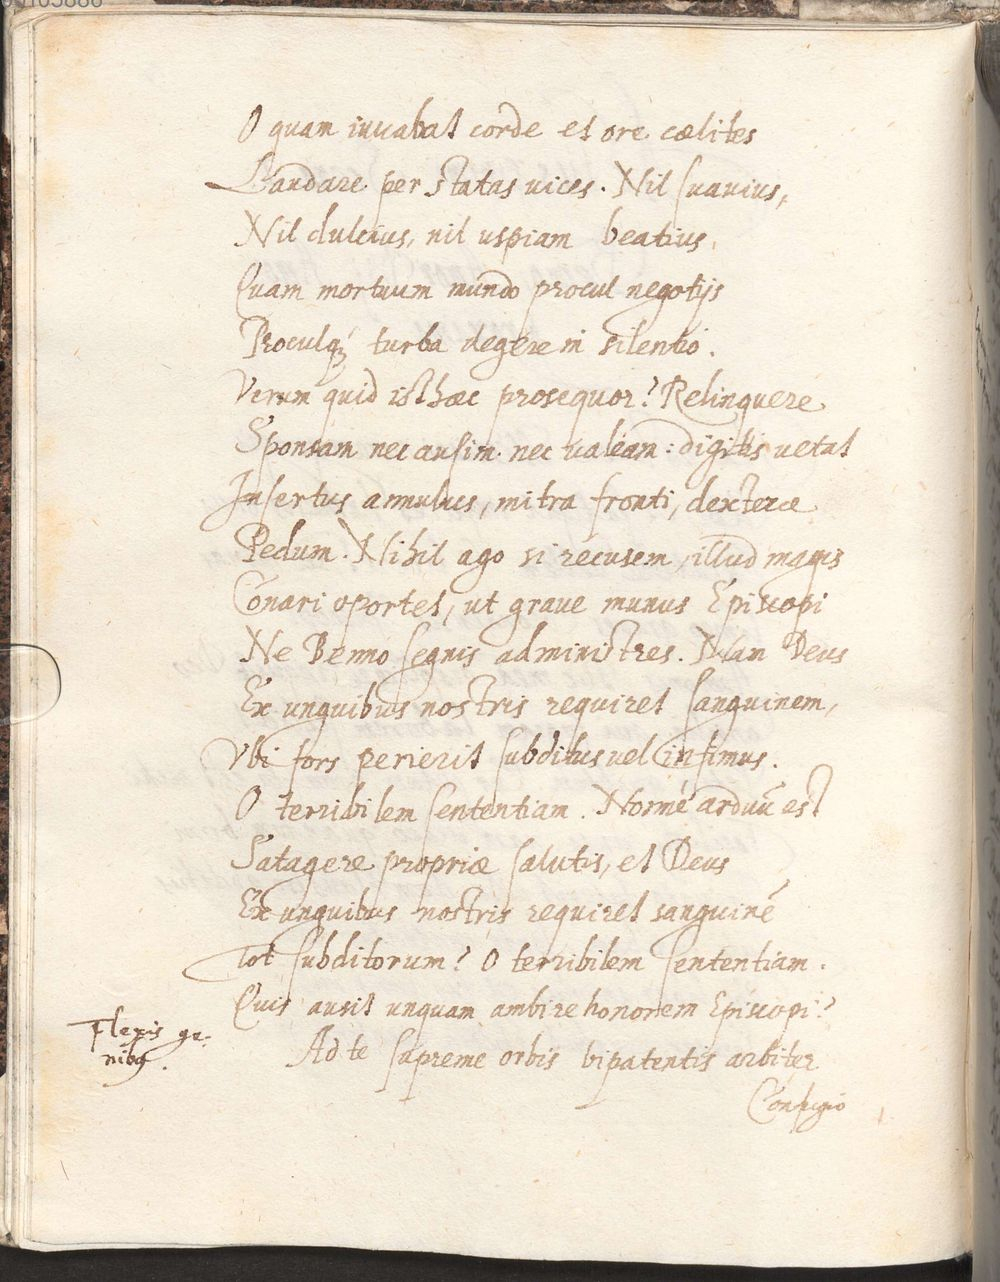 O quam iuvabat corde et ore cælites
Laudare per statas vices. Nil suavius,
Nil dulcius, nil uspiam beatius,
Quam mortuum mundo procul negotijs
Proculq́ꝫ turba degere in silentio.
Verum quid isthæc prosequor? Relinquere
Sponsam nec ausim nec valeam: digitis vetat
Insertus annulus, mitra fronti, dexteræ
Pedum. Nihil ago si recusem, illud magis
Conari oportet, ut grave munus Episcopi
Ne Benno segnis administres. Nam Deus
Ex unguibus nostris requiret sanguinem,
Ubi fors perierit subditus vel infimus.
O terribilem sententiam. Normé arduū est
Satagere propriæ salutis, et Deus
Ex unguibus nostris requiret sanguinē
Tot subditorum? O terribilem sententiam.
Quis ausit unquam ambire honorem Episcopi?
Flexis ge-
nibꝰ.
Ad te supreme orbis bipatentis arbiter
Confugio